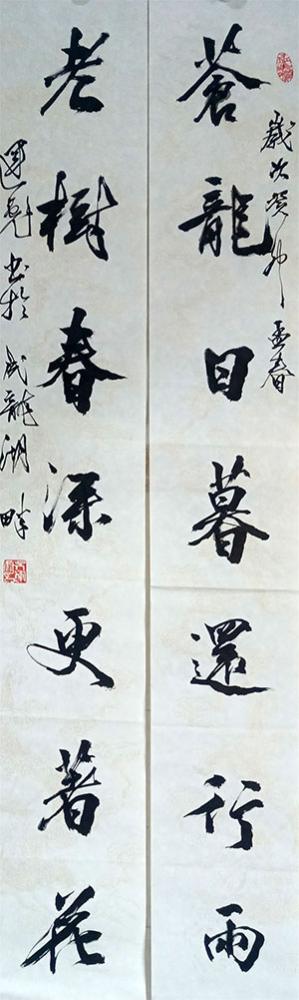 歲次癸卯孟春
蒼龍日暮還行雨
老樹春深更著花
運乾書於成龍湖畔